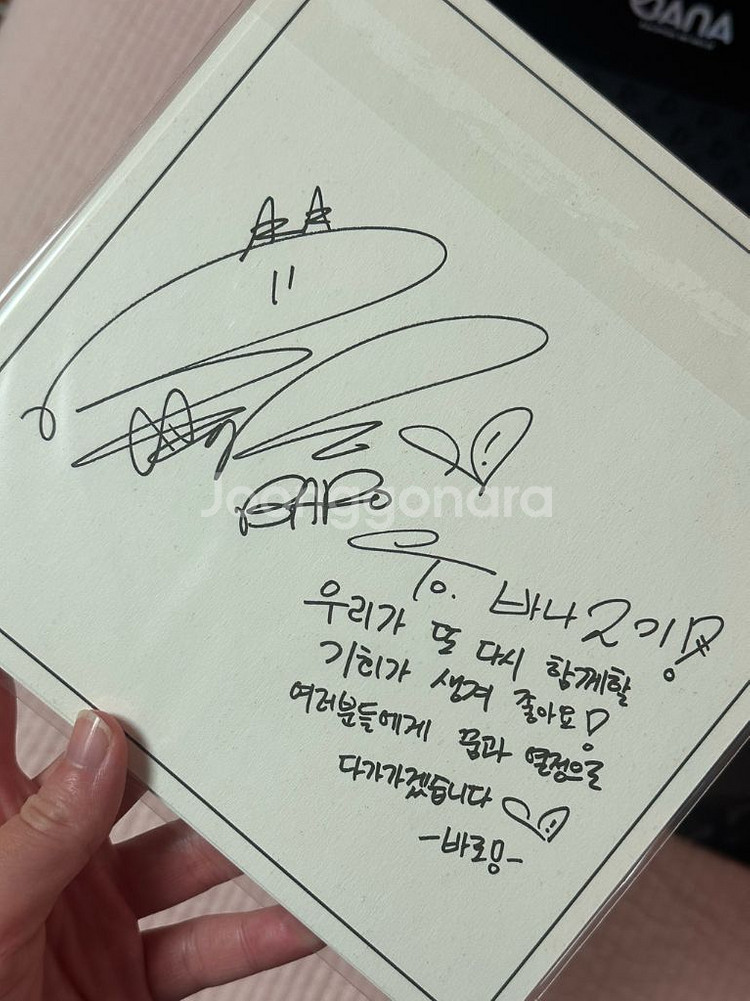 BANA
Joonggonara
BARO
To. 바나 2기!
우리가 또 다시 함께할
기회가 생겨 좋아요!
여러분들에게 꿈과 열정으로
다가가겠듭니다
-바로밍-